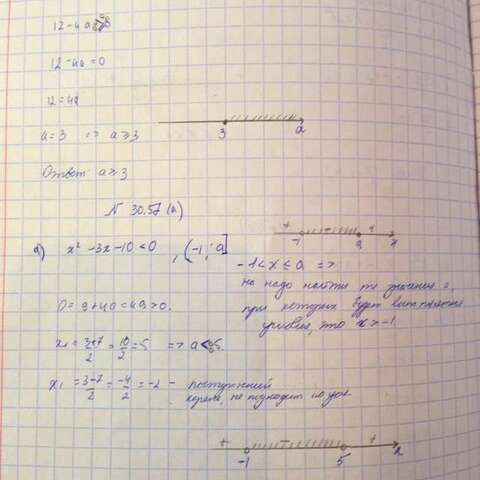 12-4a
12-4a=0
12=4a
a=3 => a≥3
3 a
Ответ: a≥3
N 30.57 (а)
+ - +
-1 a x
а) x² -3x-10<0 , (-1; a]
-1<x≤a =>
но надо найти те значения a,
при которых будет выполняться
условие, что x>-1.
D=9+40=49>0.
x₁=3+7/2=10/2=5 => a<5.
x₁=3-7/2=-4/2=-2 - посторонний
корень, не подходит по усл.
+ - +
-1 5 x